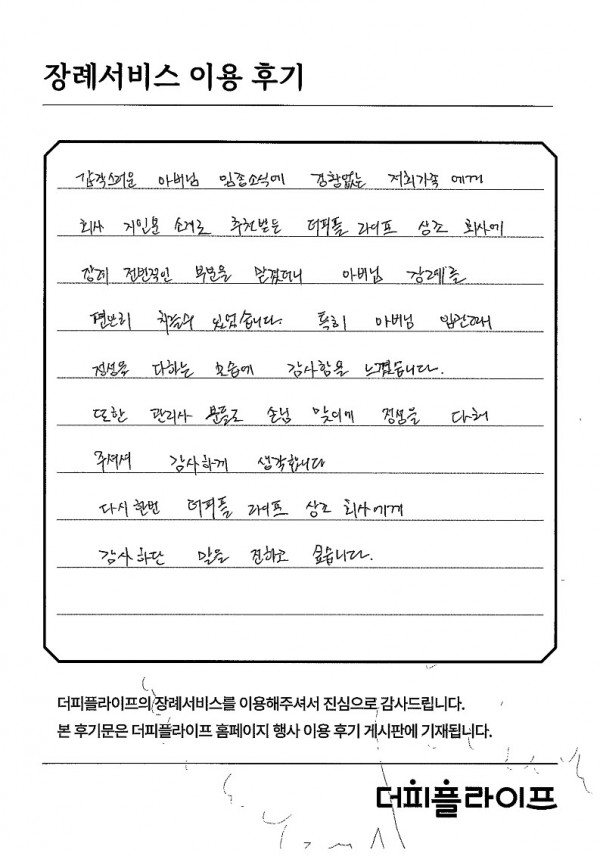 장례서비스 이용 후기
갑작스러운 아버님 임종소식에 경황없는 저희가족 에게
회사 지인분 소개로 추천받은 더피플 라이프 상조 회사에
장례 전반적인 부분을 맡겼더니 아버님 장례를
편안히 치룰수 있었습니다. 특히 아버님 입관때
정성을 다하는 모습에 감사함을 느꼈습니다.
또한 관리사 분들도 손님 맞이에 정성을 다해
주셔서 감사하게 생각합니다
다시한번 더피플 라이프 상조 회사에게
감사하단 말을 전하고 싶습니다.
더피플라이프의 장례서비스를 이용해주셔서 진심으로 감사드립니다.
본 후기문은 더피플라이프 홈페이지 행사 이용 후기 게시판에 기재됩니다.
더피플라이프